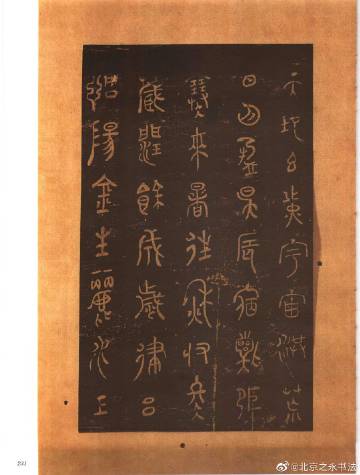 天地玄黃宇宙洪荒
日月盈昃辰宿列張
寒來暑往秋收冬
藏閏餘成歲律呂
調陽金生麗水玉
@北京之永书法